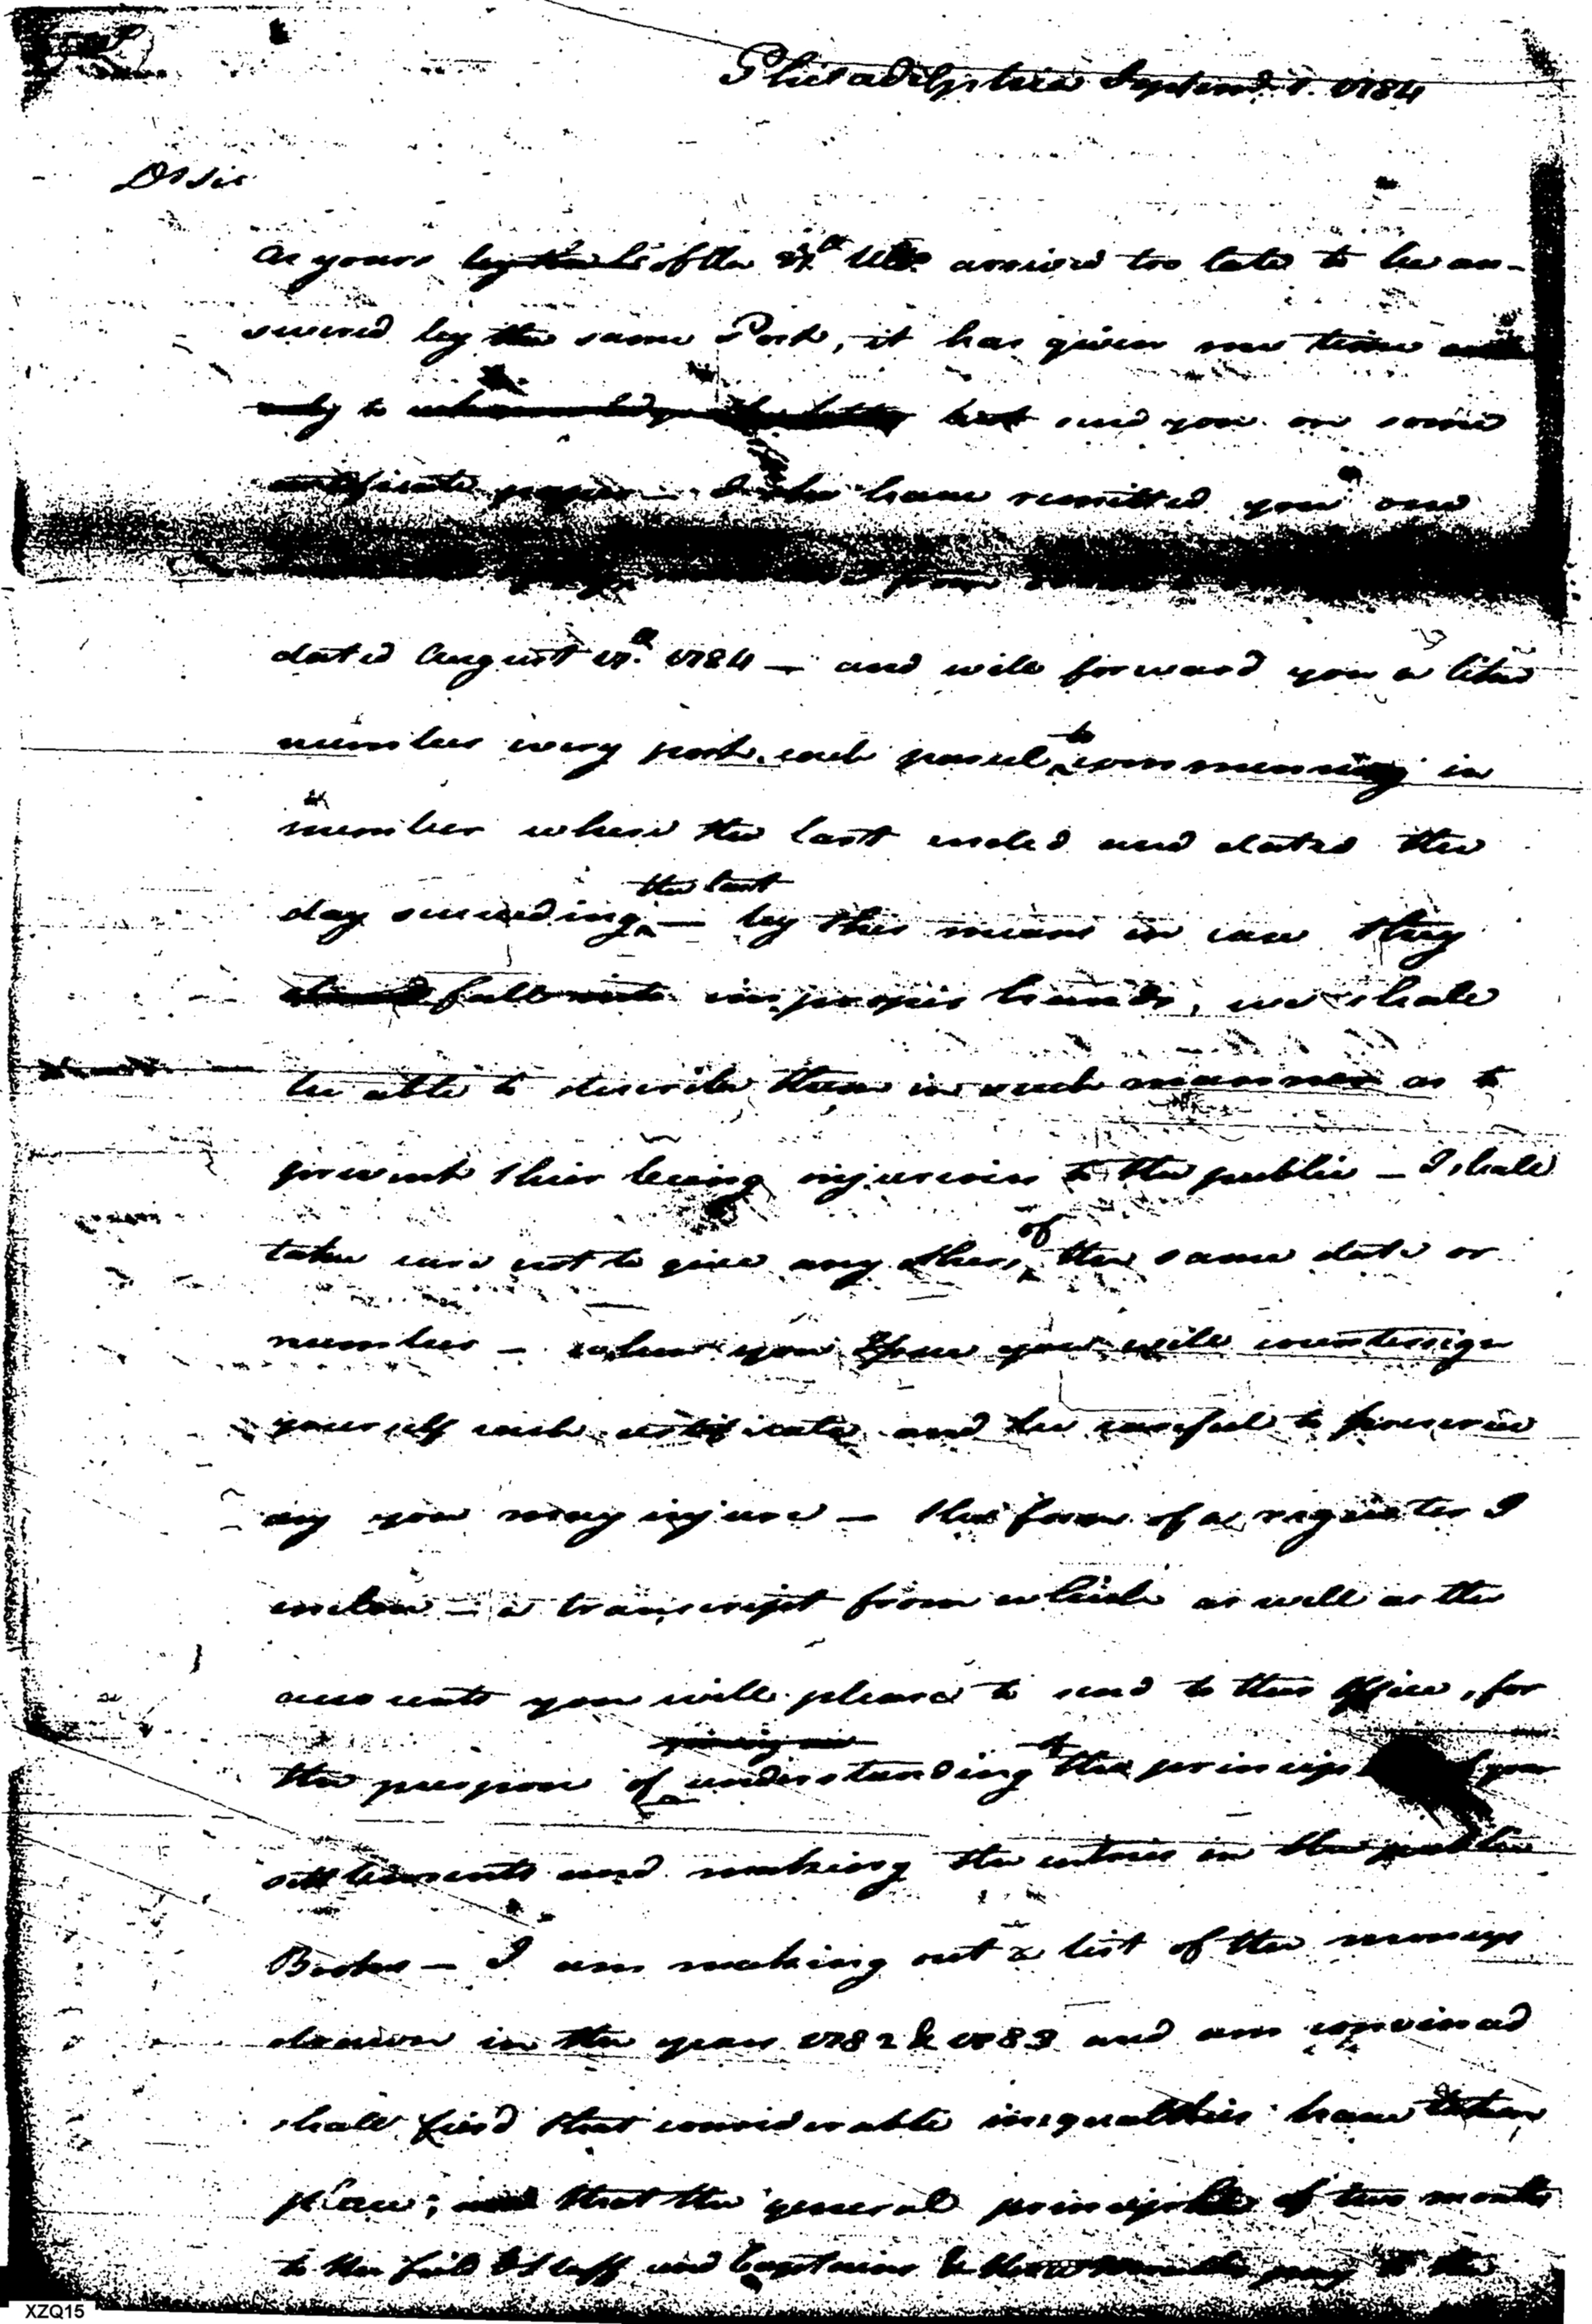 Philadelphia Septemr. 1. 1784
Dr Sir
As yours of the Ulto arrived too late to be an-
swered by the same Post, it has given me time
only to but send you on some
certificate paper — I have remitted you one
from
dated August 17th. 1784 — and will forward you a like
number every post. each parcel to commencing in
number where the last ended and dated the
day succeeding the last — by this means in case they
fall into improper hands, we shall
be able to describe them in such manner as to
prevent their being injurious to the public — I shall
take care not to give any others of the same date or
number — when you you will countersign
yourself each certificate and be careful to preserve
any you may injure — the form of a register I
inclose — a transcript from which as well as the
accounts you will please to send to this Office, for
the purpose of understanding the your
settlements and making the entries in the
Books — I am making out a list of the moneys
drawn in the years 1782 & 1783 and am convinced
shall find that considerable inequalities have taken
place; that the general principle of two months
to the field & Staff and Captains & pay to the
XZQ15